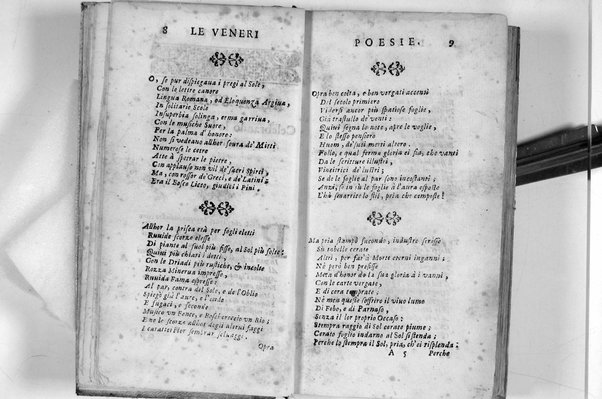 8 LE VENERI
O, se pur dispiegava i pregi al Sole,
Con le lettre canore
Lingua Romana, od Eloquenza Argiua,
In solitarie Scole
Insuperbia solinga, erma garriua,
Con le musiche Suore,
Per la palma d'honore:
Non si vedeano allhor soura de' Mirti
Numerose le cetre
Atte à spetrar le pietre,
Con applauso non vil de' sacri spirti,
Ma, con rossor de' Greci, e de' Latini
Era il Bosco Liceo, giudici i Pini.
Allhor la prisca età per fogli eletti
Ruuide scorze elesse
Di piante al suol più fisse, al Sol più folte;
Quiui più chiari i detti,
Con le Driadi più rustiche, & incolte
Rozza Minerua impresse,
Ruuida Fama espresse:
Al par, contra del Sole, e de l'Oblio
Spiegò già l'aure, e l'onde
E fugaci, e seconde
Musico un Fonte, e Boschereccio un Rio;
E ne le scorze allhor degli alorni faggi
I caratteri fier sembrar seluaggi.
Opra
POESIE. 9
Opra ben colta, e ben vergati accenti
Del secolo primiero
Vidersi ancor più spatiose foglie,
Già trastullo de' venti:
Quiui segna lo noto, apre le voglie,
E lo stesso pensiero
Huom, de' suoi merti altero:
Folle, e qual ferma gloria ei fia, che vanti
Da le scritture illustri,
Vincitrici de' lustri;
Se de le foglie al par sono incostanti;
Anzi, se in sù le foglie à l'aura esposte
L'hà smarrite lo stil, pria che composte?
Ma pria stampò facondo, industre scrisse
Sù tabelle cerate
Altri, per far à Morte eterni inganni;
Nè però ben prefisse
Meta d'honor de la sua gloria à i vanni,
Con le carte vergate,
E di cera temprate:
Nè men queste soffriro il viuo lume
Di Febo, e di Parnaso,
Senza il lor proprio Occaso:
Stempra raggio di Sol cerate piume;
Cerato foglio indarno al Sol distenda;
Perche lo stempra il Sol, pria, ch'ei risplenda;
A 5 Perche